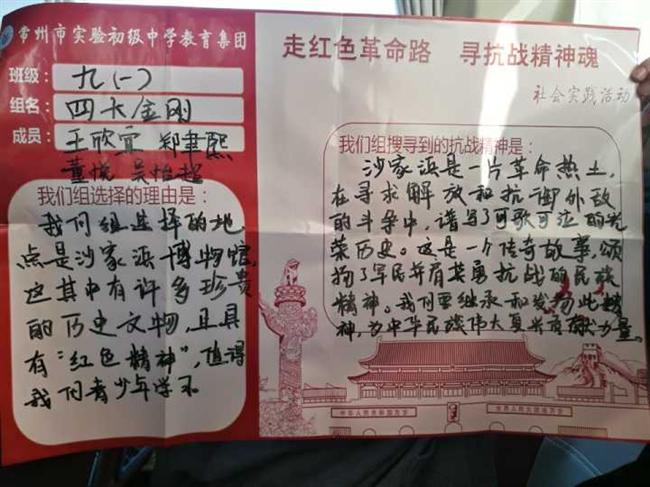 常州市实验初级中学教育集团
班级： 九(一)
组名： 四大金刚
成员： 王欣宜 郑聿熙
董悦 吴怡超
我们组选择的理由是：
我们组选择的地
点是沙家浜博物馆，
这其中有许多珍贵
的历史文物，且具
有“红色精神”，值得
我们青少年学习
走红色革命路 寻抗战精神魂
社会实践活动
我们组搜寻到的抗战精神是：
沙家浜是一片革命热土，
在寻求解放和抗御外敌
的斗争中，谱写了可歌可泣的光
荣历史。这是一个传奇故事，颂
扬了军民并肩英勇抗战的民族
精神。我们要继承和发扬此精
神，为中华民族伟大复兴贡献力量。
中华人民共和国万岁
世界人民大团结万岁